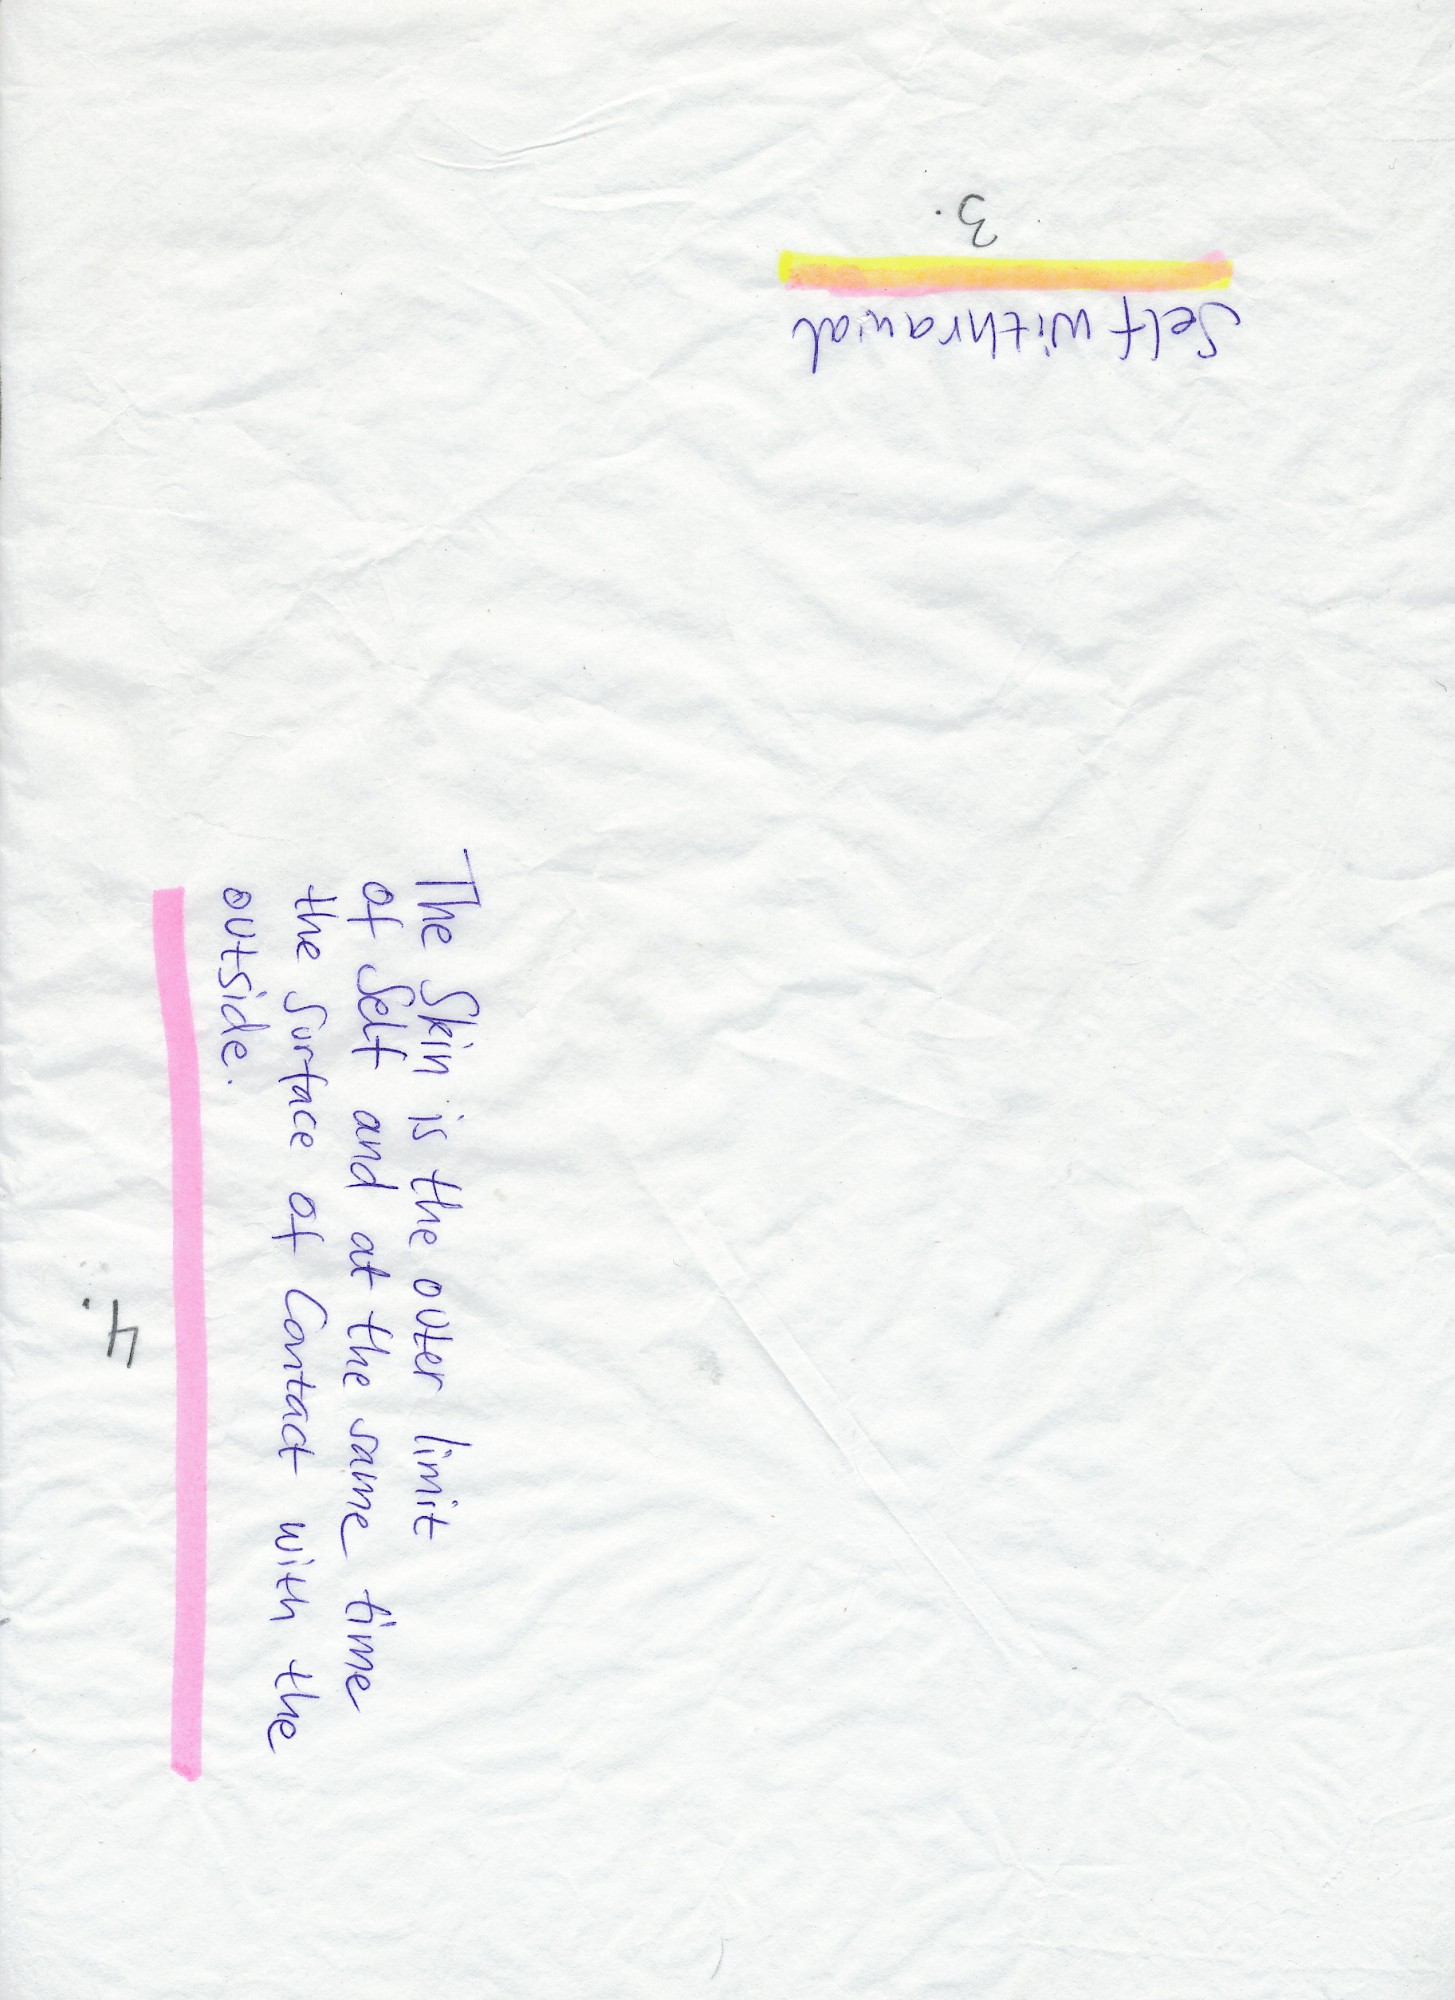 Self withrawal
3.
The Skin is the outer limit
of Self and at the same time
the surface of Contact with the
outside.
4.